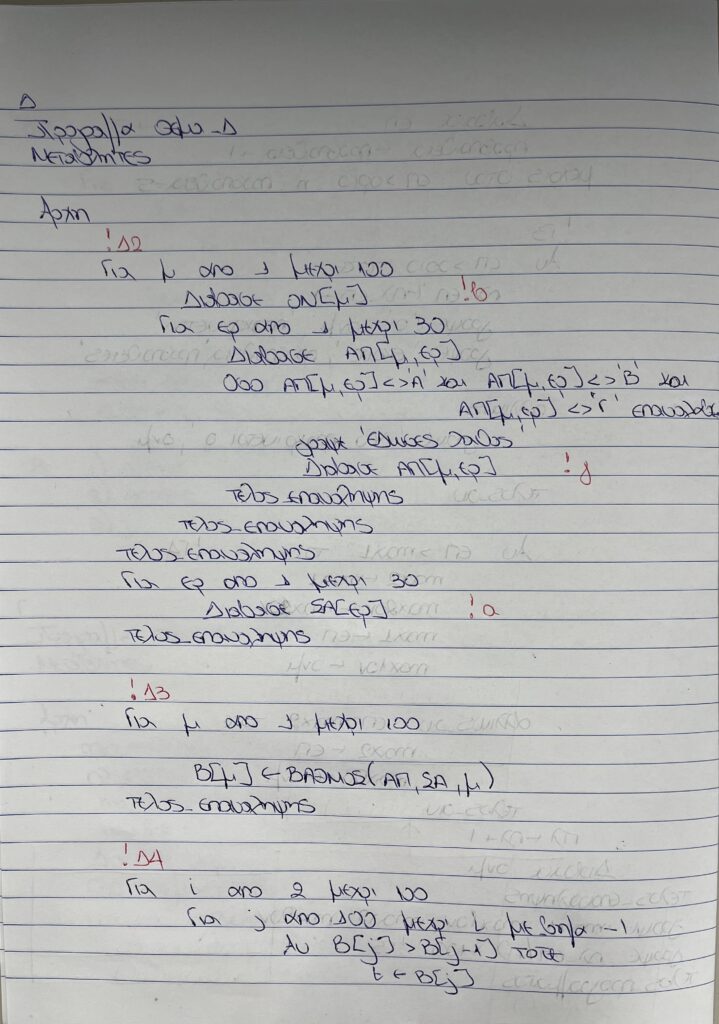 Δ
Πρόγραμμα Θέμα_Δ
Μεταβλητές
Αρχή
!Δ2
Για μ από 1 μέχρι 100
Διάβασε ΟΝ[μ] !b
Για ερ από 1 μέχρι 30
Διάβασε ΑΠ[μ,ερ]
Όσο ΑΠ[μ,ερ]<>'Α' και ΑΠ[μ,ερ]<>'Β' και
ΑΠ[μ,ερ]<>'Γ' επανάλαβε
γράψε 'Έδωσες λάθος'
Διάβασε ΑΠ[μ,ερ] !γ
τέλος_επανάληψης
τέλος_επανάληψης
τέλος_επανάληψης
Για ερ από 1 μέχρι 30
Διάβασε ΣΑ[ερ] !a
τέλος_επανάληψης
!Δ3
Για μ από 1 μέχρι 100
Β[μ] ← ΒΑΘΜΟΣ(ΑΠ,ΣΑ,μ)
τέλος_επανάληψης
!Δ4
Για i από 2 μέχρι 100
Για j από 100 μέχρι i με βήμα -1
Αν Β[j]>Β[j-1] τότε
t ← Β[j]